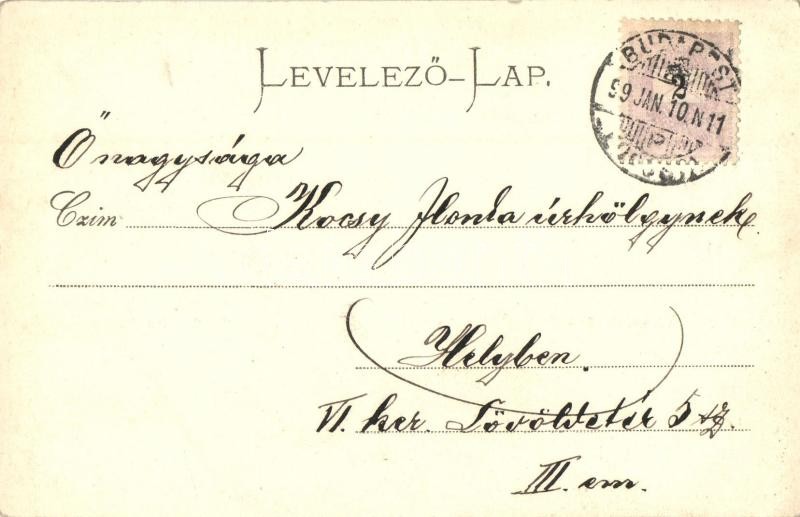 LEVELEZŐ-LAP.
BUDAPEST
2
99 JAN. 10. N 11
Őnagysága
Czim Kocsy Ilonka úrhölgynek
Helyben.
VI. ker. Lövöldetér 5
III. em.